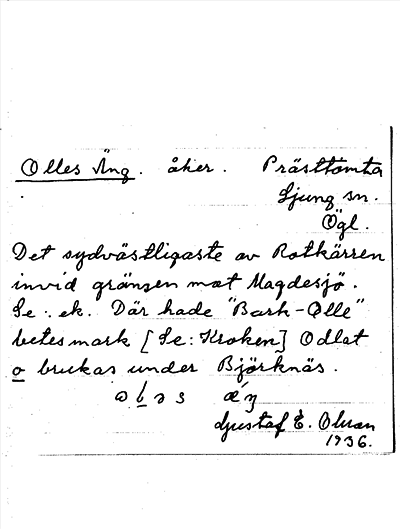 Olles Äng. åker. Prästtomta
Ljung sn.
Ögl.
Det sydvästligaste av Rotkärren
invid gränsen mot Magdesjö.
Se: ek. Där hade "Bark-Olle"
betesmark [Se: Kroken] Odlat
o brukas under Björknäs.
Gustaf E. Olsson
1936.